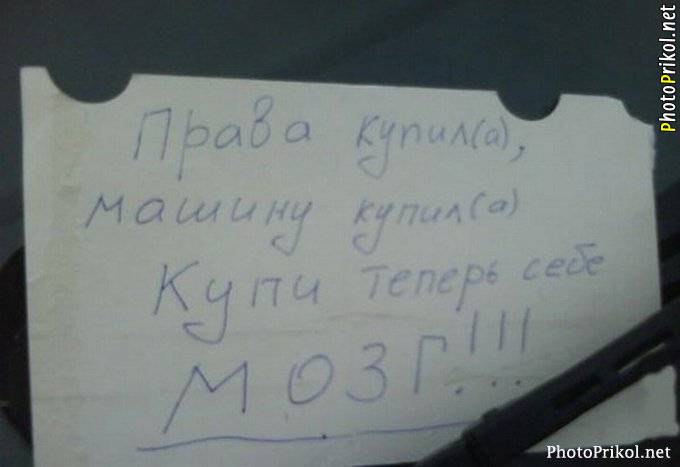 Права купил(а),
машину купил(а)
Купи теперь себе
МОЗГ!!!
PhotoPrikol.net
PhotoPrikol.net